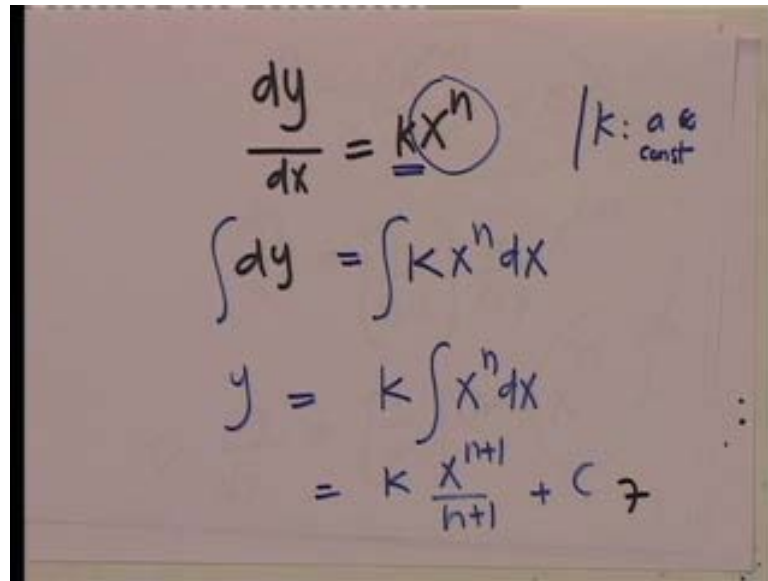 dy/dx = kx^n /k: a const
∫dy = ∫kx^n dx
y = k∫x^n dx
= k x^(n+1)/(n+1) + C